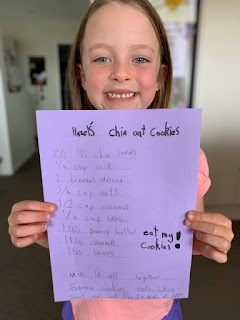 Hazel's chia oat Cookies
1/2 TBS chia Seeds
1/4 cup milk
2 bananas Mashed
3/4 cup oats
1/2 cup coconut
1/4 cup
1 TBS peanut butter
1 tsp cinnamon
1 TBS honey
eat my
Cookies!
Mix it all together
Spoon cookies onto baking